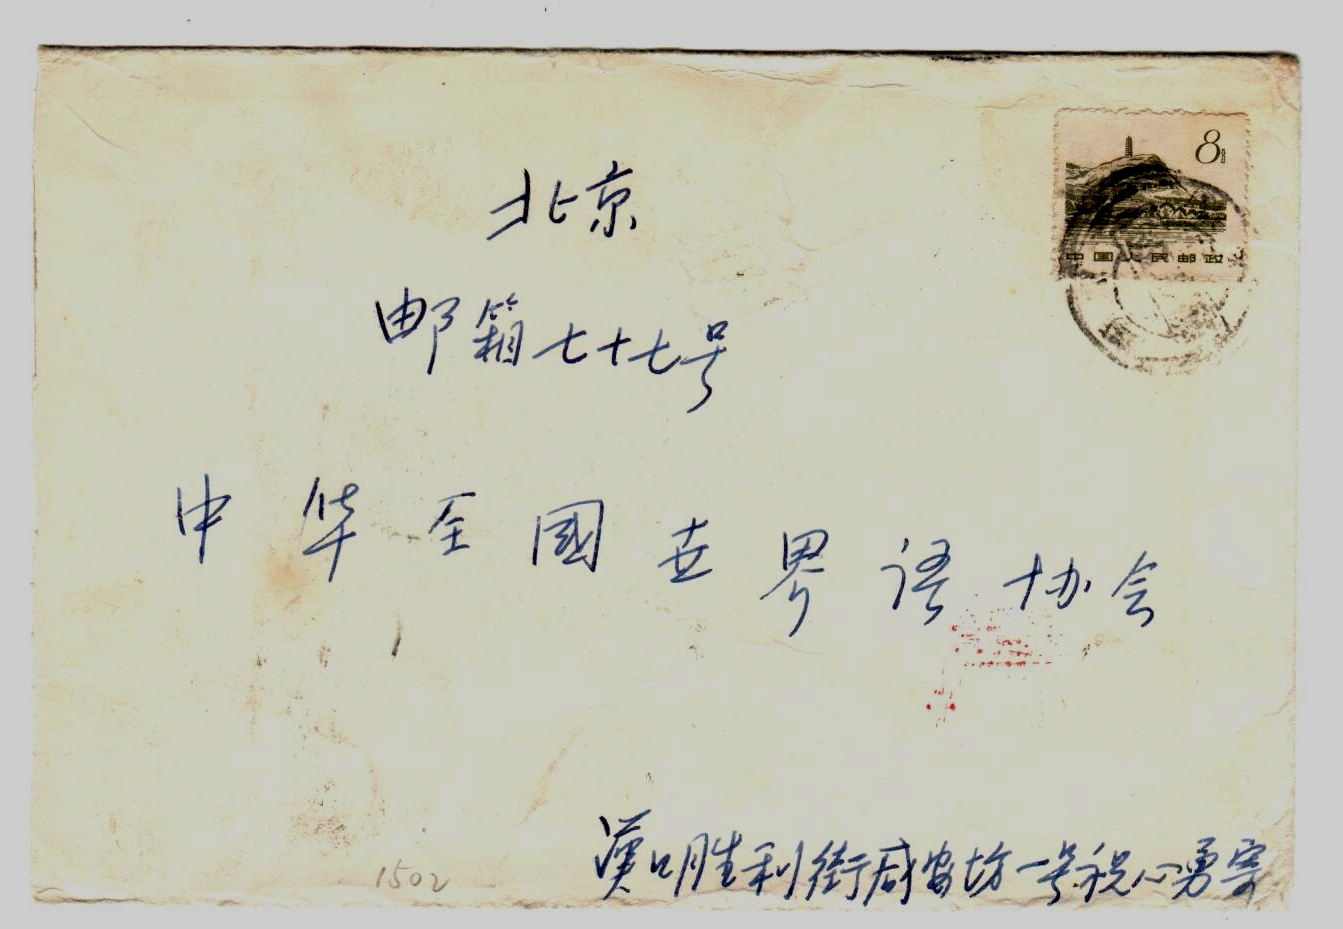 8分
中国人民邮政
北京
邮箱七十七号
中华全國世界语协会
漢口胜利街咸安坊一号祝心勇寄
1502